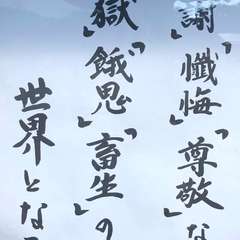 謝」「懺悔」「尊敬」な
獄」「餓鬼」「畜生」の
世界とな